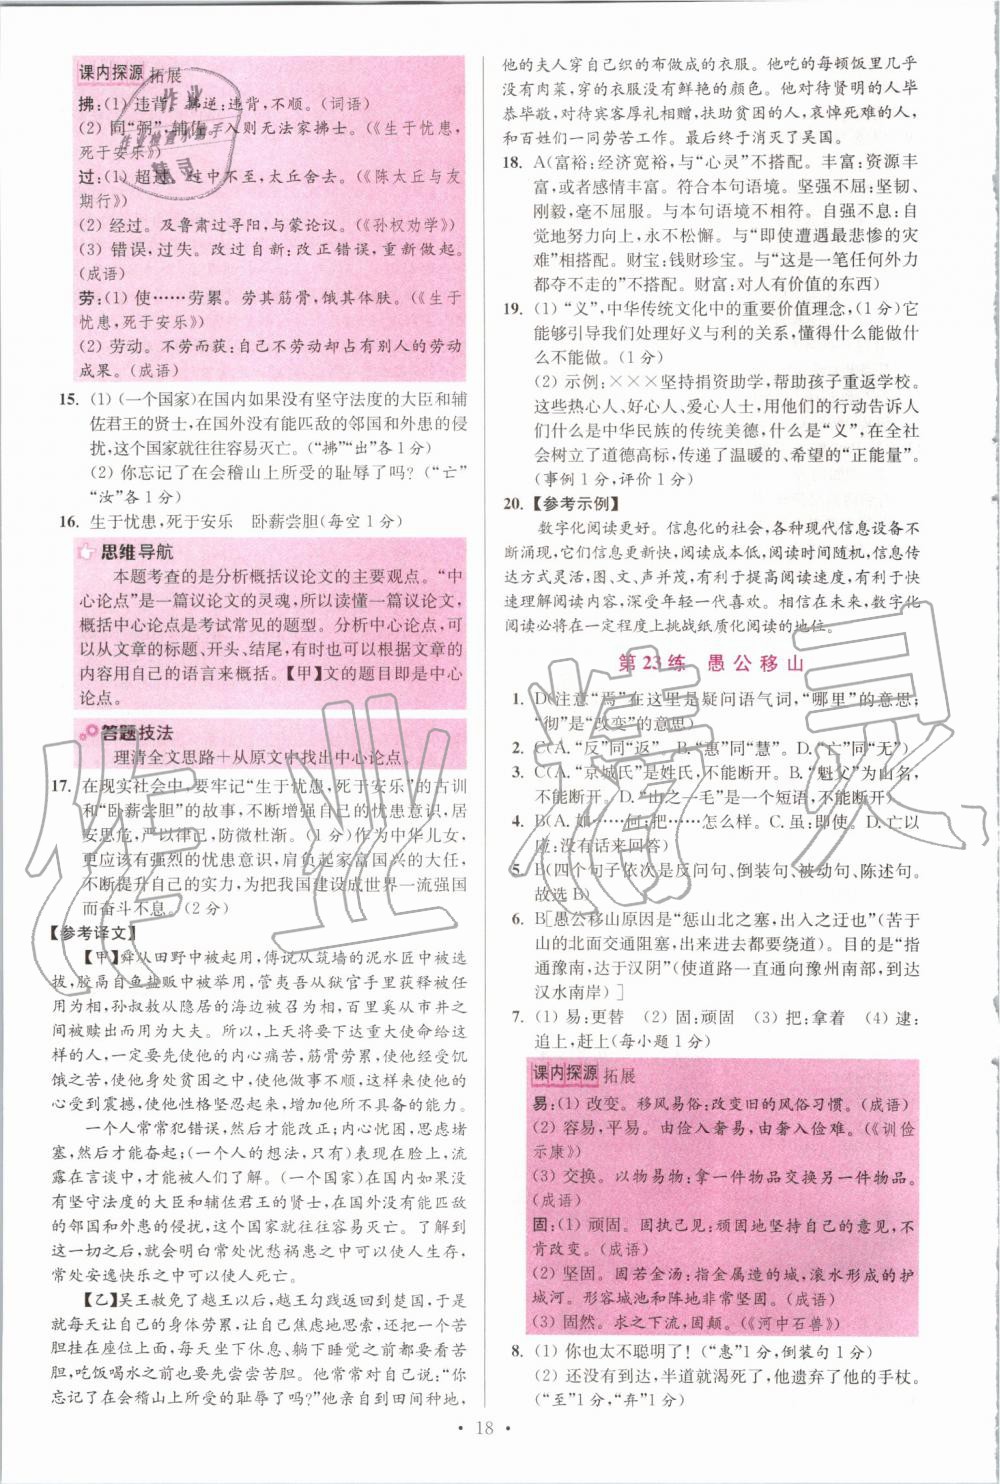 课内探源 拓展
拂:(1) 违背。拂逆:违背,不顺。(词语)
(2) 同“弼”,辅佐。入则无法家拂士。(《生于忧患,
死于安乐》)
过:(1) 超过。过中不至,太丘舍去。(《陈太丘与友
期行》)
(2) 经过。及鲁肃过寻阳,与蒙论议。(《孙权劝学》)
(3) 错误,过失。改过自新:改正错误,重新做起。
(成语)
劳:(1) 使……劳累。劳其筋骨,饿其体肤。(《生于
忧患,死于安乐》)
(2) 劳动。不劳而获:自己不劳动却占有别人的劳动
成果。(成语)
15. (1) (一个国家)在国内如果没有坚守法度的大臣和辅
佐君王的贤士,在国外没有能匹敌的邻国和外患的侵
扰,这个国家就往往容易灭亡。(“拂”“出”各1分)
(2) 你忘记了在会稽山上所受的耻辱了吗?(“亡”
“汝”各1分)
16. 生于忧患,死于安乐 卧薪尝胆(每空1分)
思维导航
本题考查的是分析概括议论文的主要观点。“中
心论点”是一篇议论文的灵魂,所以读懂一篇议论文,
概括中心论点是考试常见的题型。分析中心论点,可
以从文章的标题、开头、结尾,有时也可以根据文章的
内容用自己的语言来概括。【甲】文的题目即是中心
论点。
答题技法
理清全文思路+从原文中找出中心论点。
17. 在现实社会中,要牢记“生于忧患,死于安乐”的古训
和“卧薪尝胆”的故事,不断增强自己的忧患意识,居
安思危,严以律己,防微杜渐。(1分)作为中华儿女,
更应该有强烈的忧患意识,肩负起家富国兴的大任,
不断提升自己的实力,为把我国建设成世界一流强国
而奋斗不息。(2分)
【参考译文】
【甲】舜从田野中被起用,傅说从筑墙的泥水匠中被选
拔,胶鬲自鱼盐贩中被举用,管夷吾从狱官手里获释被任
用为相,孙叔敖从隐居的海边被召为相,百里奚从市井之
间被赎出而用为大夫。所以,上天将要下达重大使命给这
样的人,一定要先使他的内心痛苦,筋骨劳累,使他经受饥
饿之苦,使他身处贫困之中,使他做事不顺,使他的内
心受到震撼,使他性格坚忍起来,增加他所不具备的能力。
一个人常常犯错误,然后才能改正;内心忧困,思虑堵
塞,然后才能奋起;(一个人的想法,只有)表现在脸上,流
露在言谈中,才能被人们了解。(一个国家)在国内如果没
有坚守法度的大臣和辅佐君王的贤士,在国外没有能匹敌
的邻国和外患的侵扰,这个国家就往往容易灭亡。了解到
这一切之后,就会明白常处忧愁祸患之中可以使人生存,
常处安逸快乐之中可以使人死亡。
【乙】吴王赦免了越王以后,越王勾践返回到楚国,于是
就每天让自己的身体劳累,让自己焦虑地思索,还把一个苦
胆挂在座位上面,每天坐下休息、躺下睡觉之前都仰起头尝尝苦
胆,吃饭喝水之前也要先尝尝苦胆。他常常对自己说:“你
忘记了在会稽山上所受的耻辱了吗?”他亲自到田间种地,
他的夫人穿自己织的布做成的衣服。他吃的每顿饭里几乎
没有肉菜,穿的衣服没有鲜艳的颜色。他对待贤明的人毕
恭毕敬,对待宾客厚礼相赠,扶助贫困的人,哀悼死难的人,
和百姓们一同劳苦工作。最后终于消灭了吴国。
18. A(富裕:经济宽裕,与“心灵”不搭配。丰富:资源丰
富,或者感情丰富。符合本句语境。坚强不屈:坚韧、
刚毅,毫不屈服。与本句语境不相符。自强不息:自
觉地努力向上,永不松懈。与“即使遭遇最悲惨的灾
难”相搭配。财宝:钱财珍宝。与“这是一笔任何外力
都夺不走的”不搭配。财富:对人有价值的东西)
19. (1) “义”,中华传统文化中的重要价值理念,(1分)它
能够引导我们处理好义与利的关系,懂得什么能做什
么不能做。(1分)
(2) 示例:×××坚持捐资助学,帮助孩子重返学校。
这些热心人、好心人、爱心人士,用他们的行动告诉人
们什么是中华民族的传统美德,什么是“义”,在全社
会树立了道德高标,传递了温暖的、希望的“正能量”。
(事例1分,评价1分)
20. 【参考示例】
数字化阅读更好。信息化的社会,各种现代信息设备不
断涌现,它们信息更新快,阅读成本低,阅读时间随机,信息传
达方式灵活,图、文、声并茂,有利于提高阅读速度,有利于快
速理解阅读内容,深受年轻一代喜欢。相信在未来,数字化
阅读必将在一定程度上挑战纸质化阅读的地位。
第23练 愚公移山
1. D(注意“焉”在这里是疑问语气词,“哪里”的意思;
“彻”是“改变”的意思)
2. C(A.“反”同“返”。B.“惠”同“慧”。D.“亡”同“无”)
3. C(A.“京城氏”是姓氏,不能断开。B.“魁父”为山名,
不能断开。D.“山之一毛”是一个短语,不能断开)
4. B(A. 如……何:把……怎么样。C. 虽:即使。D. 亡以
应:没有话来回答)
5. B(四个句子依次是反问句、倒装句、被动句、陈述句。
故选B)
6. B[愚公移山原因是“惩山北之塞,出入之迂也”(苦于
山的北面交通阻塞,出来进去都要绕道)。目的是“指
通豫南,达于汉阴”(使道路一直通向豫州南部,到达
汉水南岸)]
7. (1) 易:更替 (2) 固:顽固 (3) 把:拿着 (4) 逮:
追上,赶上(每小题1分)
课内探源 拓展
易:(1) 改变。移风易俗:改变旧的风俗习惯。(成语)
(2) 容易,平易。由俭入奢易,由奢入俭难。(《训俭
示康》)
(3) 交换。以物易物:拿一件物品交换另一件物品。
(成语)
固:(1) 顽固。固执己见:顽固地坚持自己的意见,不
肯改变。(成语)
(2) 坚固。固若金汤:指金属造的城,滚水形成的护
城河。形容城池和阵地非常坚固。(成语)
(3) 固然。求之下流,固颠。(《河中石兽》)
8. (1) 你也太不聪明了!(“惠”1分,倒装句1分)
(2) 还没有到达,半道渴死了。遗弃了他的手杖。
(“至”1分,“弃”1分)
• 18 •